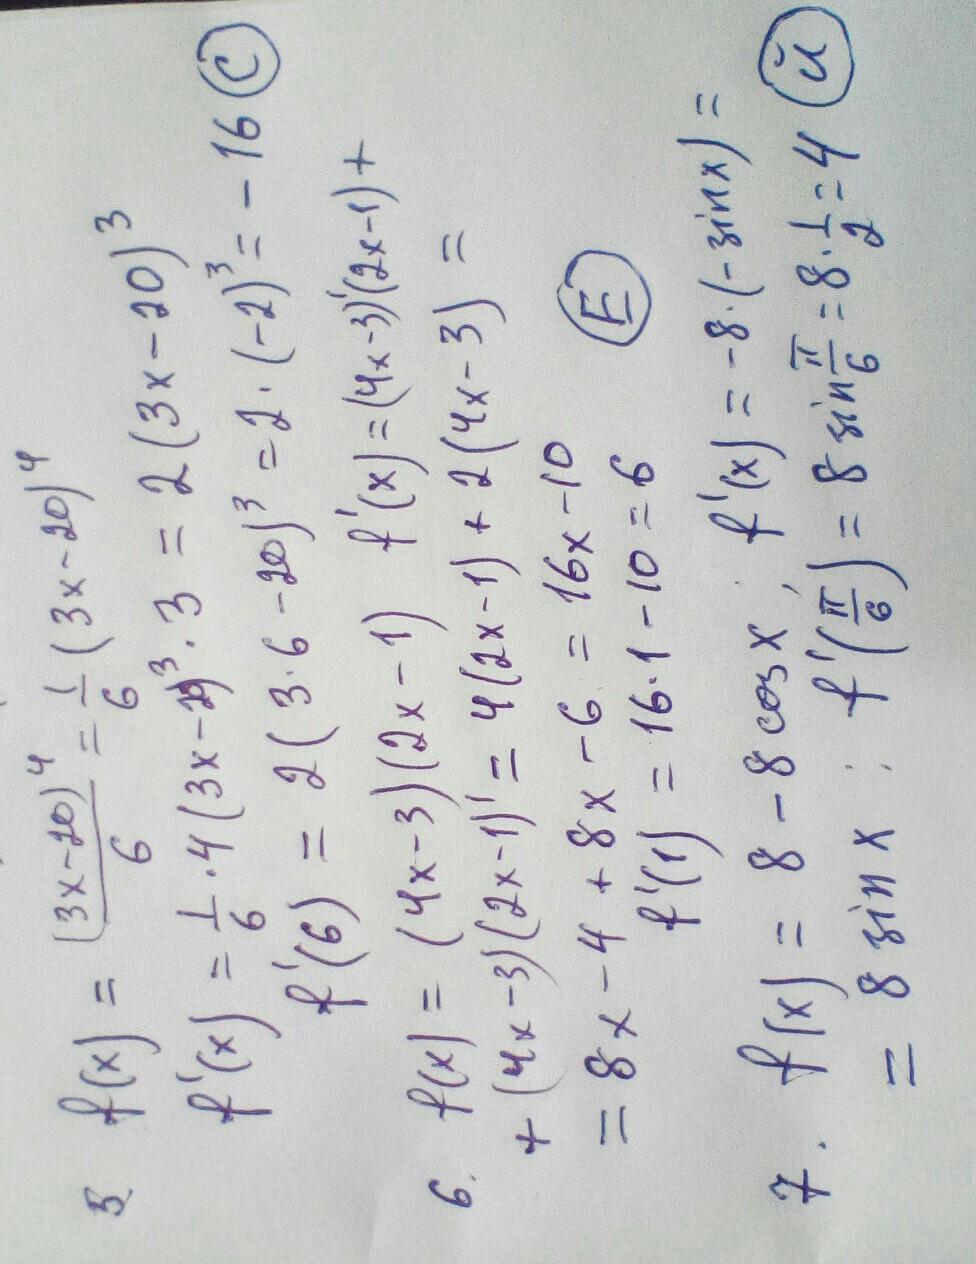 5 f(x) = (3x-20)⁴/6 = 1/6 (3x-20)⁴
f'(x) = 1/6 · 4(3x-20)³ · 3 = 2(3x-20)³
f'(6) = 2(3·6-20)³ = 2·(-2)³ = -16 (C)
6. f(x) = (4x-3)(2x-1) f'(x) = (4x-3)'(2x-1) +
+ (4x-3)(2x-1)' = 4(2x-1) + 2(4x-3) =
= 8x-4 + 8x-6 = 16x-10
f'(1) = 16·1-10 = 6 (E)
7. f(x) = 8 - 8cosx; f'(x) = -8·(-sinx) =
= 8 sin x ; f'(π/6) = 8 sin π/6 = 8·1/2 = 4 (й)